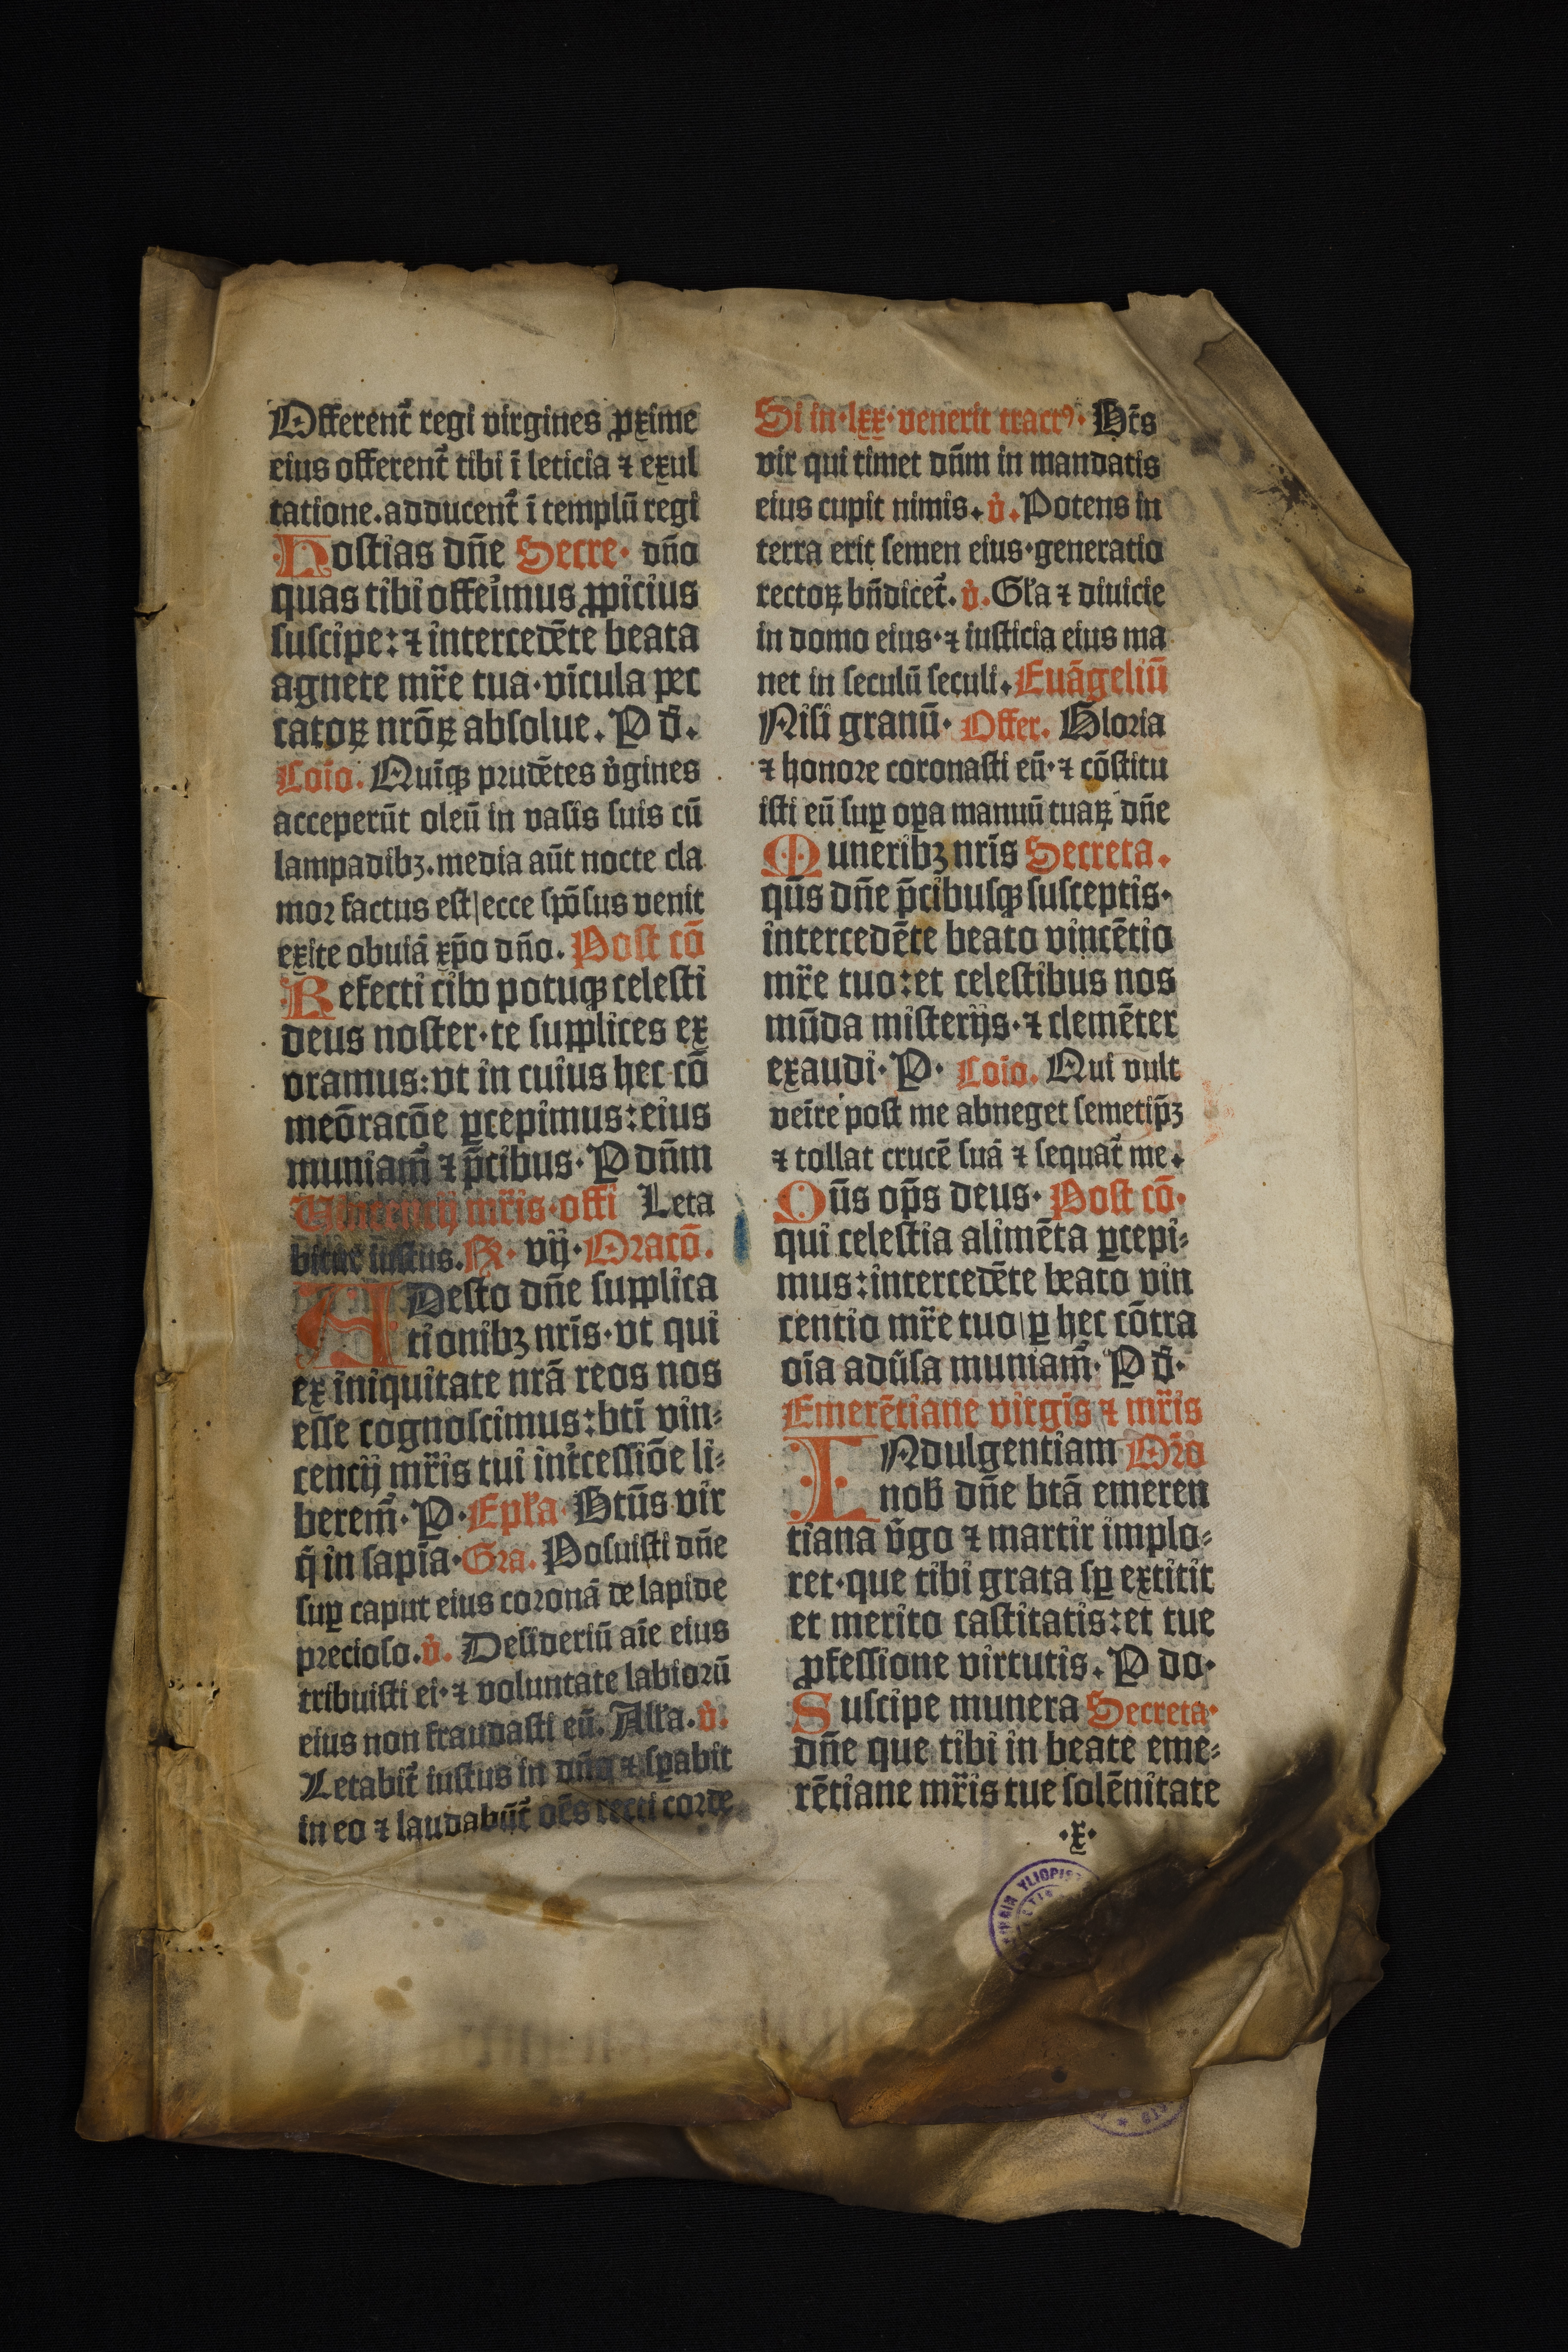 Offerent᷑ regi virgines ꝓxime
eius offerent᷑ tibi ī leticia ⁊ exul
tatione.adducent᷑ ī templū regi
Hostias dn̄e Secre· dn̄o
quas tibi offeim̉us ꝓpicius
suscipe:⁊ intercedēte beata
agnete mr̄e tua·vīcula pec
catoꝝ nrōꝝ absolue. P d̄.
Cōio. Quīqꝫ prudētes v̓gines
acceperūt oleū in vasis suis cū
lampadibꝫ.media aūt nocte cla
mor factus est|ecce spōsus venit
exite obuiā xp̄o dn̄o. Post cō
Refecti cibo potuqꝫ celesti
deus noster·te supplices ex
oramus:vt in cuius hec cō
meōracōe ꝑcepimus:eius
muniam᷑ ⁊ p̄cibus· P dn̄m
Vincencij mr̄is·offi Leta
bitur iustus.Rͯ· vij·Oracō.
ADesto dn̄e supplica
tionibꝫ nrīs·vt qui
ex iniquitate nrā reos nos
esse cognoscimus:bti vin⸗
cencij mr̄is tui int̓cessiōe li⸗
berem᷑· P·Epl̄a Btūs vir
q̄ in sapīa·Gra. Posuisti dn̄e
suꝑ caput eius coronā de lapide
precioso.v̓. Desideriū aīe eius
tribuisti ei·⁊ voluntate labiorū
eius non fraudasti eū. All̄a.v̓.
Letabit᷑ iustus in dn̄o ⁊ sꝑabit
in eo ⁊ laudabūt᷑ oēs recti corde
Si in·lxx·venerit tractꝰ· Bt̄s
vir qui timet dn̄m in mandatis
eius cupit nimis.v̓.Potens in
terra erit semen eius·generatio
rectoꝝ bn̄dicet᷑.v̓.Gl̄a ⁊ diuicie
in domo eius·⁊ iusticia eius ma
net in seculū seculi.Euāgeliū
Nisi granū· Offer. Gloria
⁊ honore coronasti eū·⁊ cōstitu
isti eū suꝑ oꝑa manuū tuaꝝ dn̄e
Muneribꝫ nrīs Secreta.
qūs dn̄e p̄cibusqꝫ susceptis·
intercedēte beato vincētio
mr̄e tuo:et celestibus nos
mūda misterijs·⁊ clemēter
exaudi·P· Cōio. Qui vult
veīre post me abneget semetip̄ꝫ
⁊ tollat crucē suā ⁊ sequat᷑ me.
Oūs op̄s deus· Post cō·
qui celestia alimēta ꝑcepi⸗
mus:intercedēte beato vin
centio mr̄e tuo|ꝑ hec cōtra
oīa adūsa muniam᷑· P d̄·
Emerētiane virgīs ⁊ mr̄is
INdulgentiam Orō
nob̄ dn̄e btā emeren
tiana v̓go ⁊ martir implo⸗
ret·que tibi grata sꝑ extitit
et merito castitatis:et tue
ꝓfessione virtutis. P do·
Suscipe munera Secreta·
dn̄e que tibi in beate eme⸗
rētiane mr̄is tue solēnitate
·x·
YLIOPIS